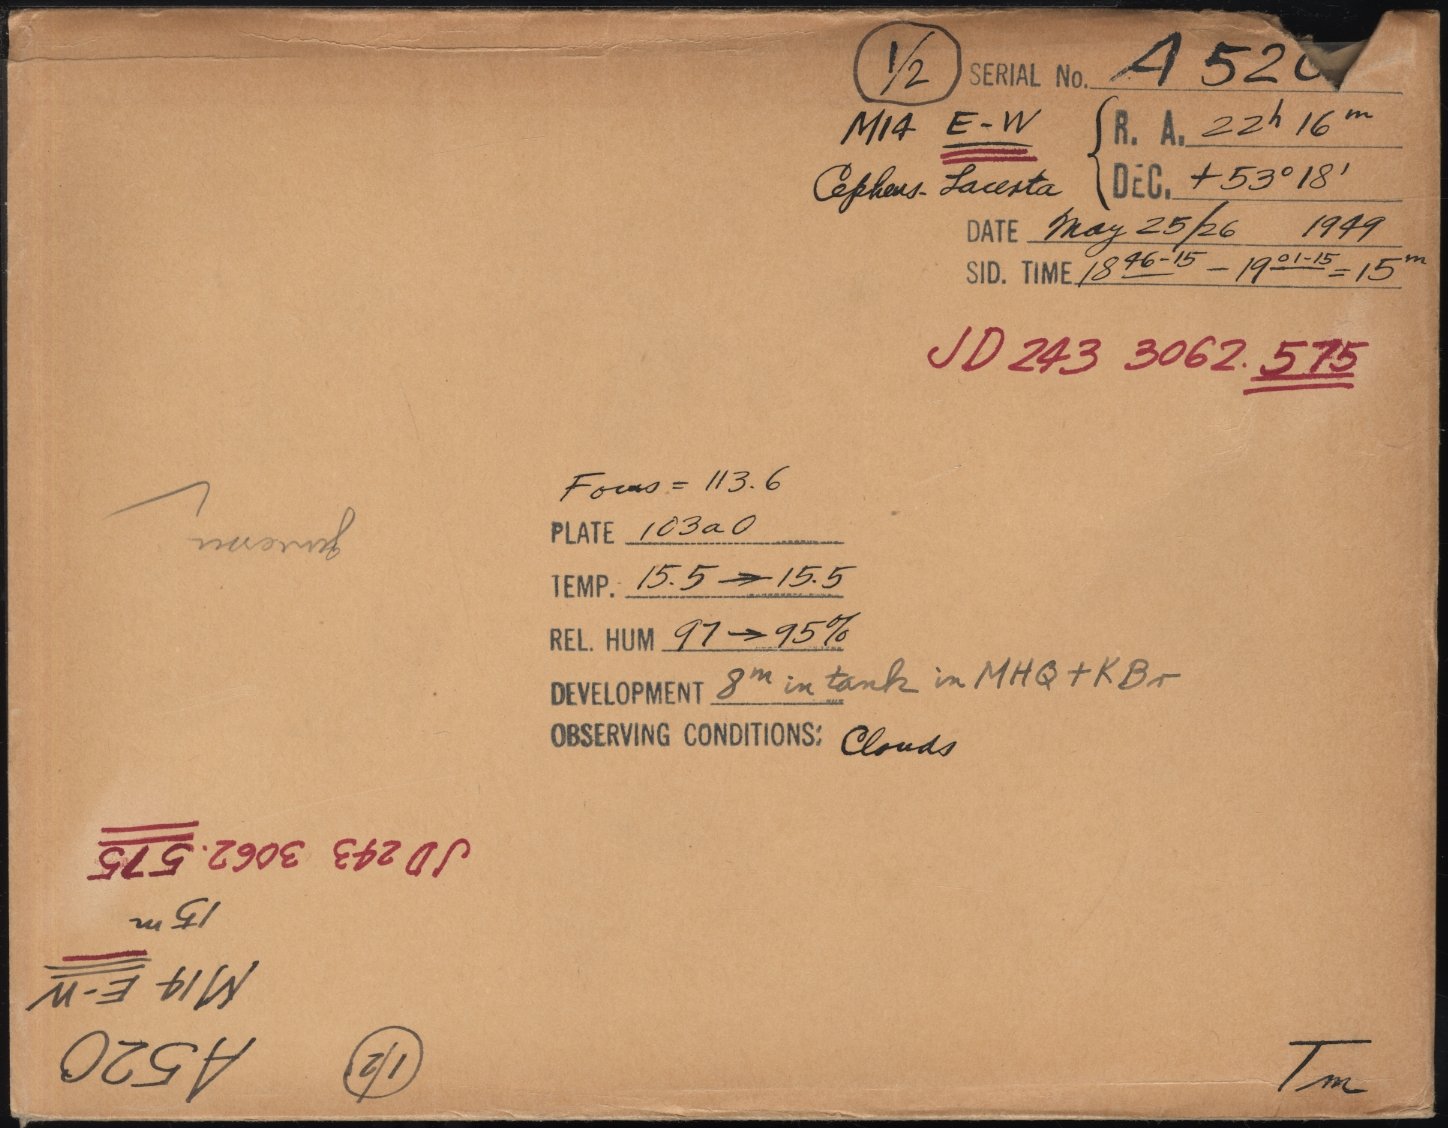 1/2 SERIAL No. A 520
M14 E-W R. A. 22h 16m
Cepheus-Lacerta DEC. +53°18'
DATE May 25/26 1949
SID. TIME 18 46-15 - 19 01-15 = 15m
JD 243 3062.575
Focus = 113.6
PLATE 103aO
TEMP. 15.5 → 15.5
REL. HUM 97 → 95%
DEVELOPMENT 8m in tank in MHQ + KBr
OBSERVING CONDITIONS: Clouds
JD 243 3062.575
15m
M14 E-W
A520 1/2
Tm